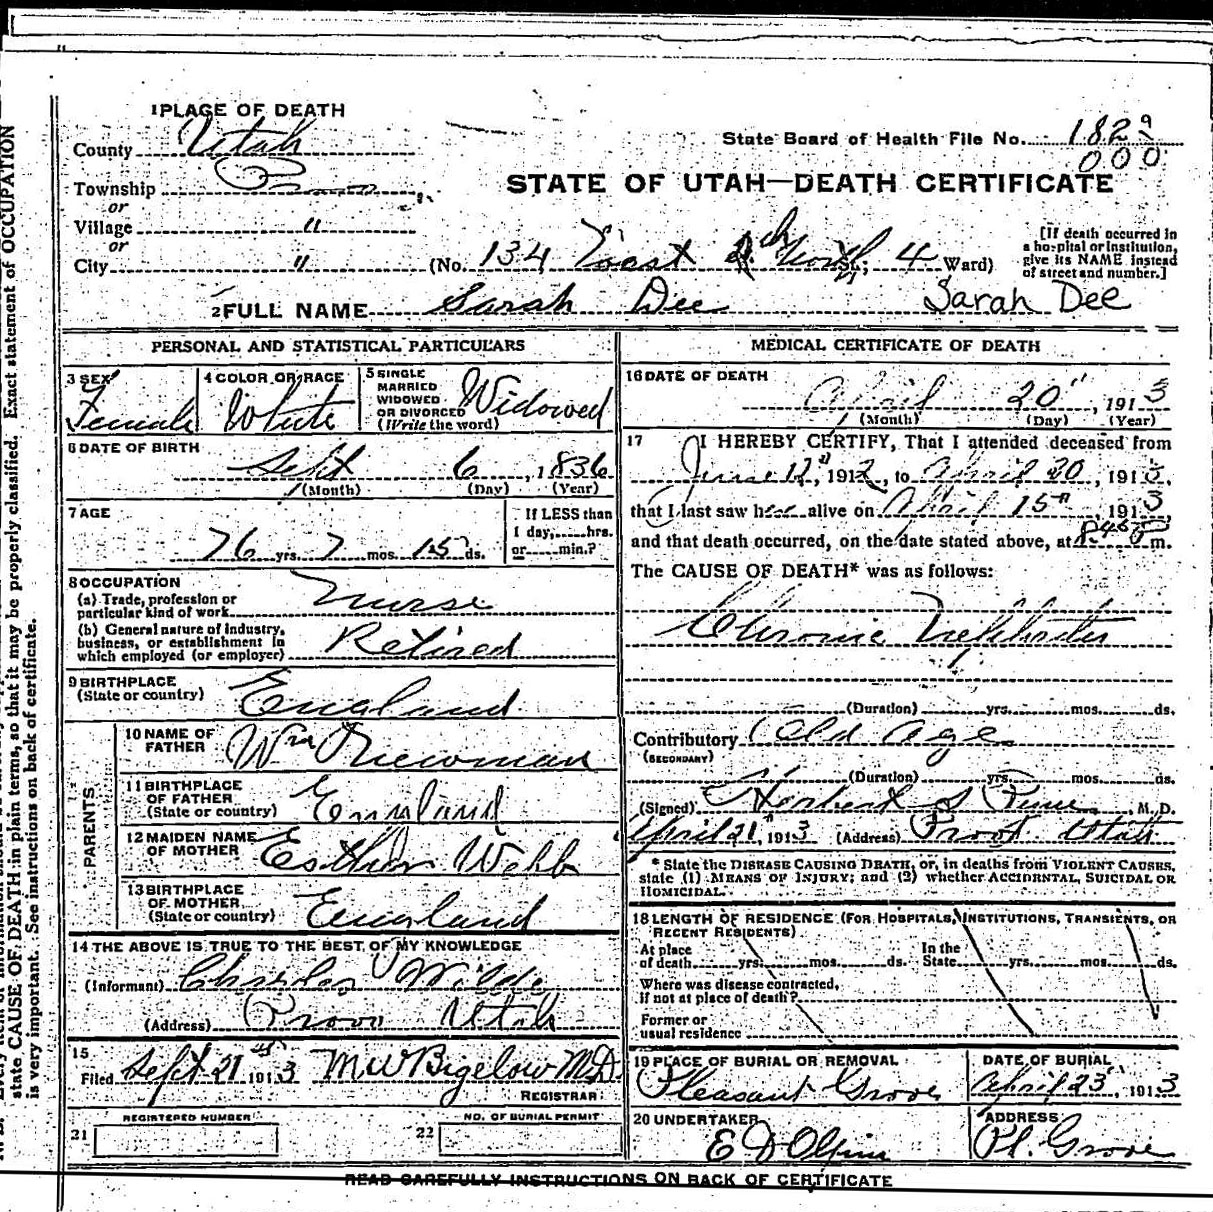 1 PLACE OF DEATH
County Utah
State Board of Health File No. 1829
000
Township Provo
or
STATE OF UTAH—DEATH CERTIFICATE
Village "
or
City "
(No. 134 East North St; 4 Ward)
[If death occurred in
a hospital or institution,
give its NAME instead
of street and number.]
2 FULL NAME Sarah Dee
Sarah Dee
PERSONAL AND STATISTICAL PARTICULARS
3 SEX
Female
4 COLOR OR RACE
White
5 SINGLE
MARRIED
WIDOWED
OR DIVORCED
(Write the word)
Widowed
6 DATE OF BIRTH
Sept 6, 1836
(Month) (Day) (Year)
7 AGE
76 yrs. 7 mos. 15 ds.
If LESS than
1 day, hrs.
or min.?
8 OCCUPATION
(a) Trade, profession or
particular kind of work
Nurse
(b) General nature of industry,
business, or establishment in
which employed (or employer)
Retired
9 BIRTHPLACE
(State or country)
England
PARENTS
10 NAME OF
FATHER
Wm Newman
11 BIRTHPLACE
OF FATHER
(State or country)
England
12 MAIDEN NAME
OF MOTHER
Esther Webb
13 BIRTHPLACE
OF MOTHER
(State or country)
England
14 THE ABOVE IS TRUE TO THE BEST OF MY KNOWLEDGE
(Informant) Charles Wilde
(Address) Provo Utah
15
Filed Sept 21 1913 M W Bigelow M.D.
REGISTRAR
REGISTERED NUMBER
21
NO. OF BURIAL PERMIT
22
MEDICAL CERTIFICATE OF DEATH
16 DATE OF DEATH
April 20", 1913
(Month) (Day) (Year)
17 I HEREBY CERTIFY, That I attended deceased from
June 12", 1912, to April 20, 1913,
that I last saw her alive on April 15", 1913,
and that death occurred, on the date stated above, at m.
The CAUSE OF DEATH* was as follows:
Chronic Nephritis
(Duration) yrs. mos. ds.
Contributory Old Age
(SECONDARY)
(Duration) yrs. mos. ds.
(Signed) Herbert S Pyne, M. D.
April 21", 1913 (Address) Provo Utah
* State the DISEASE CAUSING DEATH, or, in deaths from VIOLENT CAUSES,
state (1) MEANS OF INJURY; and (2) whether ACCIDENTAL, SUICIDAL OR
HOMICIDAL.
18 LENGTH OF RESIDENCE (FOR HOSPITALS, INSTITUTIONS, TRANSIENTS, OR
RECENT RESIDENTS)
At place
of death yrs. mos. ds.
In the
State yrs. mos. ds.
Where was disease contracted,
if not at place of death?
Former or
usual residence
19 PLACE OF BURIAL OR REMOVAL
Pleasant Grove
DATE OF BURIAL
April 23", 1913
20 UNDERTAKER
E D Olpin
ADDRESS
Pl. Grove
READ CAREFULLY INSTRUCTIONS ON BACK OF CERTIFICATE
state CAUSE OF DEATH in plain terms, so that it may be properly classified. Exact statement of OCCUPATION
is very important. See instructions on back of certificate.